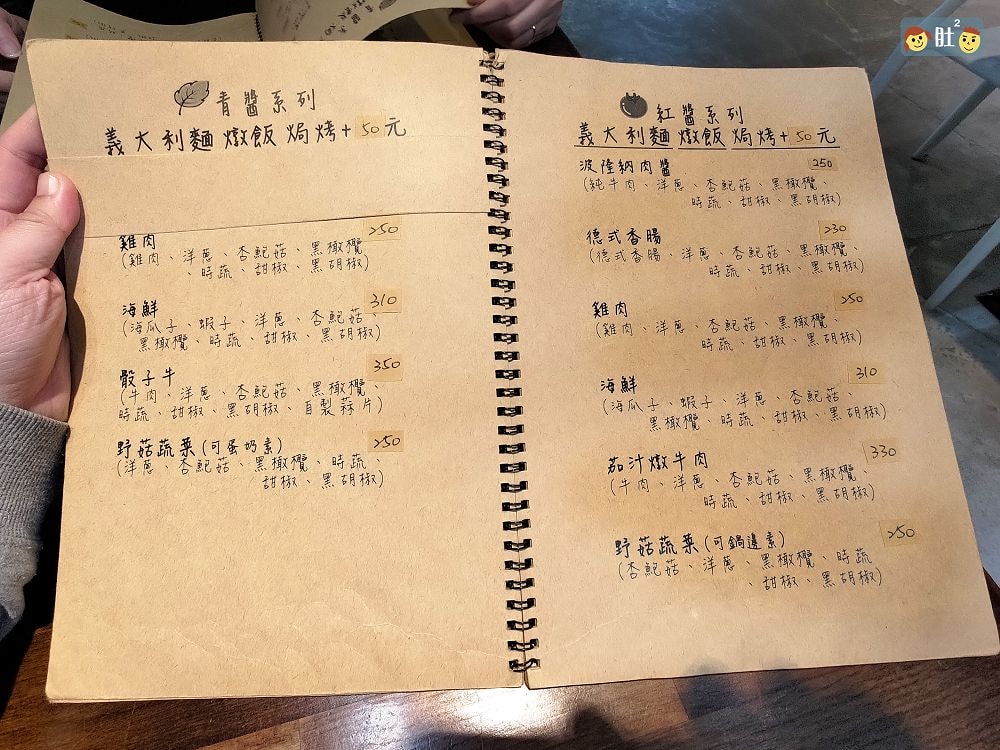 青醬系列
義大利麵燉飯焗烤+50元
雞肉 250
(雞肉、洋蔥、杏鮑菇、黑橄欖
、時蔬、甜椒、黑胡椒)
海鮮 310
(海瓜子、蝦子、洋蔥、杏鮑菇、
黑橄欖、時蔬、甜椒、黑胡椒)
骰子牛 350
(牛肉、洋蔥、杏鮑菇、黑橄欖、
時蔬、甜椒、黑胡椒、自製蒜片)
野菇蔬菜(可蛋奶素) 250
(洋蔥、杏鮑菇、黑橄欖、時蔬、
甜椒、黑胡椒)
紅醬系列
義大利麵燉飯焗烤+50元
波隆納肉醬 250
(純牛肉、洋蔥、杏鮑菇、黑橄欖
時蔬、甜椒、黑胡椒)
德式香腸 230
(德式香腸、洋蔥、杏鮑菇、黑橄欖、
時蔬、甜椒、黑胡椒)
雞肉 250
(雞肉、洋蔥、杏鮑菇、黑橄欖、
時蔬、甜椒、黑胡椒)
海鮮 310
(海瓜子、蝦子、洋蔥、杏鮑菇、
黑橄欖、時蔬、甜椒、黑胡椒)
茄汁燉牛肉 330
(牛肉、洋蔥、杏鮑菇、黑橄欖、
時蔬、甜椒、黑胡椒)
野菇蔬菜(可鍋邊素) 250
(杏鮑菇、洋蔥、黑橄欖、時蔬
、甜椒、黑胡椒)
肚2